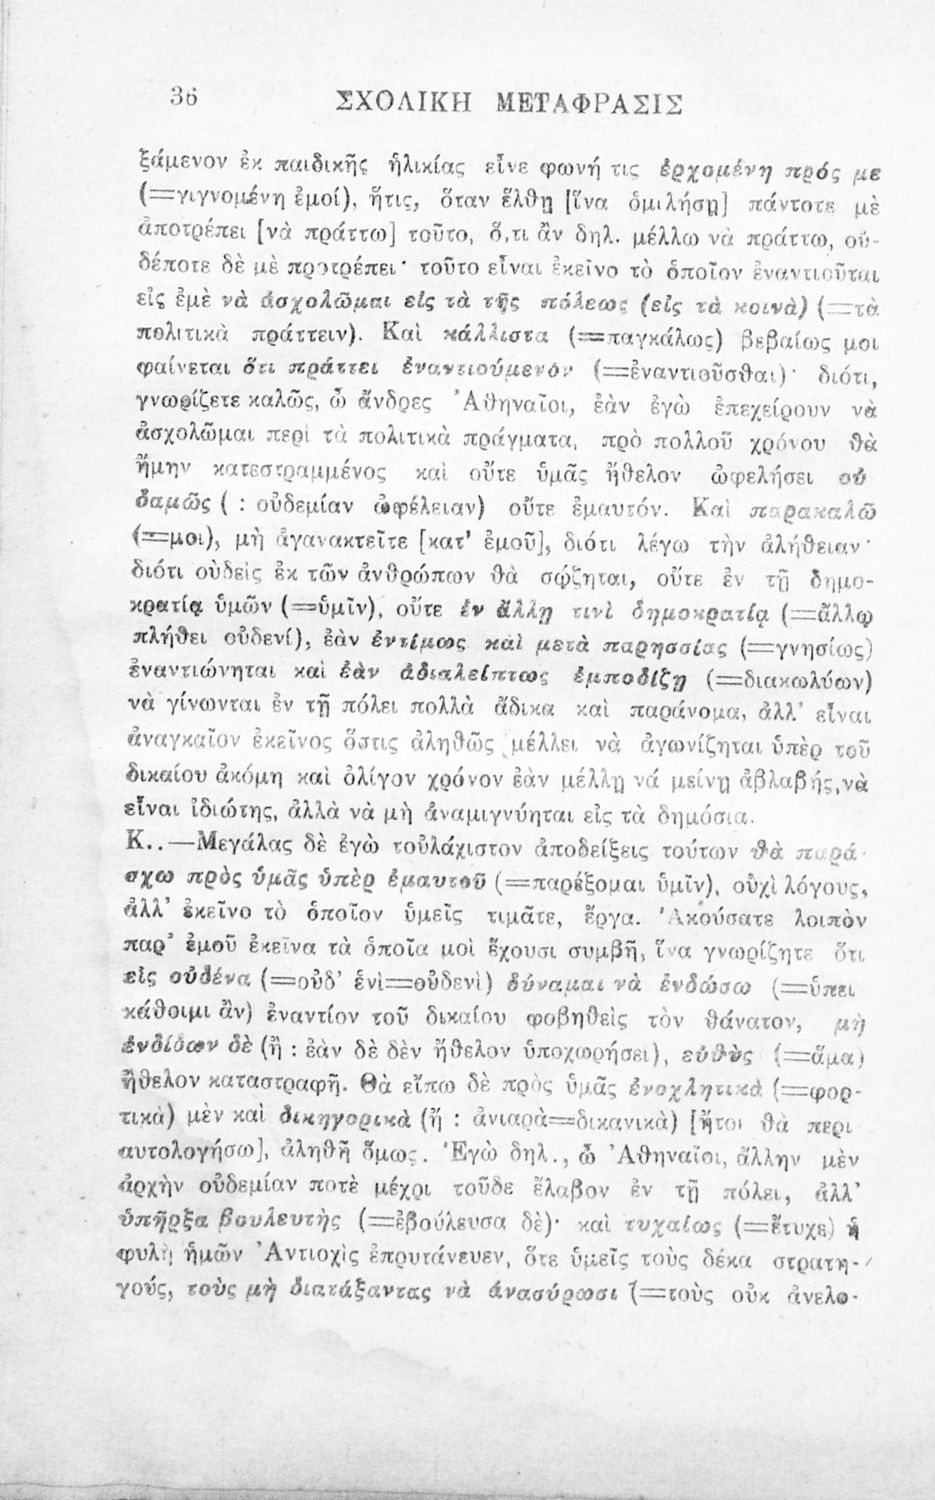 36 ΣΧΟΛΙΚΗ ΜΕΤΑΦΡΑΣΙΣ
ξάμενον ἐκ παιδικῆς ἡλικίας εἶνε φωνή τις ἐρχομένη πρός με
(=γιγνομένη ἐμοί), ἥτις, ὅταν ἔλθῃ [ἵνα ὁμιλήσῃ] πάντοτε μὲ
ἀποτρέπει [νὰ πράττω] τοῦτο, ὅ,τι ἂν δηλ. μέλλω νὰ πράττω, οὐ-
δέποτε δὲ μὲ προτρέπει· τοῦτο εἶναι ἐκεῖνο τὸ ὁποῖον ἐναντιοῦται
εἰς ἐμὲ νὰ ἀσχολῶμαι εἰς τὰ τῆς πόλεως (εἰς τὰ κοινὰ) (=τὰ
πολιτικὰ πράττειν). Καὶ κάλλιστα (=παγκάλως) βεβαίως μοι
φαίνεται ὅτι πράττει ἐναντιούμενον (=ἐναντιοῦσθαι)· διότι,
γνωρίζετε καλῶς, ὦ ἄνδρες Ἀθηναῖοι, ἐὰν ἐγὼ ἐπεχείρουν νὰ
ἀσχολῶμαι περὶ τὰ πολιτικὰ πράγματα, πρὸ πολλοῦ χρόνου θὰ
ἤμην κατεστραμμένος καὶ οὔτε ὑμᾶς ἤθελον ὠφελήσει οὐ
δαμῶς ( : οὐδεμίαν ὠφέλειαν) οὔτε ἐμαυτόν. Καὶ παρακαλῶ
(=μοι), μὴ ἀγανακτεῖτε [κατ' ἐμοῦ], διότι λέγω τὴν ἀλήθειαν·
διότι οὐδεὶς ἐκ τῶν ἀνθρώπων θὰ σῴζηται, οὔτε ἐν τῇ δημο-
κρατίᾳ ὑμῶν (=ὑμῖν), οὔτε ἐν ἄλλῃ τινὶ δημοκρατίᾳ (=ἄλλῳ
πλήθει οὐδενί), ἐὰν ἐντίμως καὶ μετὰ παρησσίας (=γνησίως)
ἐναντιώνηται καὶ ἐὰν ἀδιαλείπτως ἐμποδίζῃ (=διακωλύων)
νὰ γίνωνται ἐν τῇ πόλει πολλὰ ἄδικα καὶ παράνομα, ἀλλ' εἶναι
ἀναγκαῖον ἐκεῖνος ὅστις ἀληθῶς μέλλει νὰ ἀγωνίζηται ὑπὲρ τοῦ
δικαίου ἀκόμη καὶ ὀλίγον χρόνον ἐὰν μέλλῃ νά μείνῃ ἀβλαβής, νὰ
εἶναι ἰδιώτης, ἀλλὰ νὰ μὴ ἀναμιγνύηται εἰς τὰ δημόσια.
Κ..—Μεγάλας δὲ ἐγὼ τοὐλάχιστον ἀποδείξεις τούτων θὰ παρά-
σχω πρὸς ὑμᾶς ὑπὲρ ἐμαυτοῦ (=παρέξομαι ὑμῖν), οὐχὶ λόγους,
ἀλλ' ἐκεῖνο τὸ ὁποῖον ὑμεῖς τιμᾶτε, ἔργα. Ἀκούσατε λοιπὸν
παρ' ἐμοῦ ἐκεῖνα τὰ ὁποῖα μοὶ ἔχουσι συμβῆ, ἵνα γνωρίζητε ὅτι
εἰς οὐδένα (=οὐδ' ἑνὶ=οὐδενὶ) δύναμαι νὰ ἐνδώσω (=ὑπει
κάθοιμι ἂν) ἐναντίον τοῦ δικαίου φοβηθεὶς τὸν θάνατον, μὴ
ἐνδίδων δὲ (ἢ : ἐὰν δὲ δὲν ἤθελον ὑποχωρήσει), εὐθὺς (=ἅμα)
ἤθελον καταστραφῆ. Θὰ εἴπω δὲ πρὸς ὑμᾶς ἐνοχλητικὰ (=φορ-
τικὰ) μὲν καὶ δικηγορικὰ (ἢ : ἀνιαρὰ=δικανικὰ) [ἤτοι θὰ περι
αυτολογήσω], ἀληθῆ ὅμως. Ἐγὼ δηλ., ὦ Ἀθηναῖοι, ἄλλην μὲν
ἀρχὴν οὐδεμίαν ποτὲ μέχρι τοῦδε ἔλαβον ἐν τῇ πόλει, ἀλλ'
ὑπῆρξα βουλευτὴς (=ἐβούλευσα δὲ)· καὶ τυχαίως (=ἔτυχε) ἡ
φυλὴ ἡμῶν Ἀντιοχὶς ἐπρυτάνευεν, ὅτε ὑμεῖς τοὺς δέκα στρατη-
γούς, τοὺς μὴ διατάξαντας νὰ ἀνασύρωσι (=τοὺς οὐκ ἀνελο-